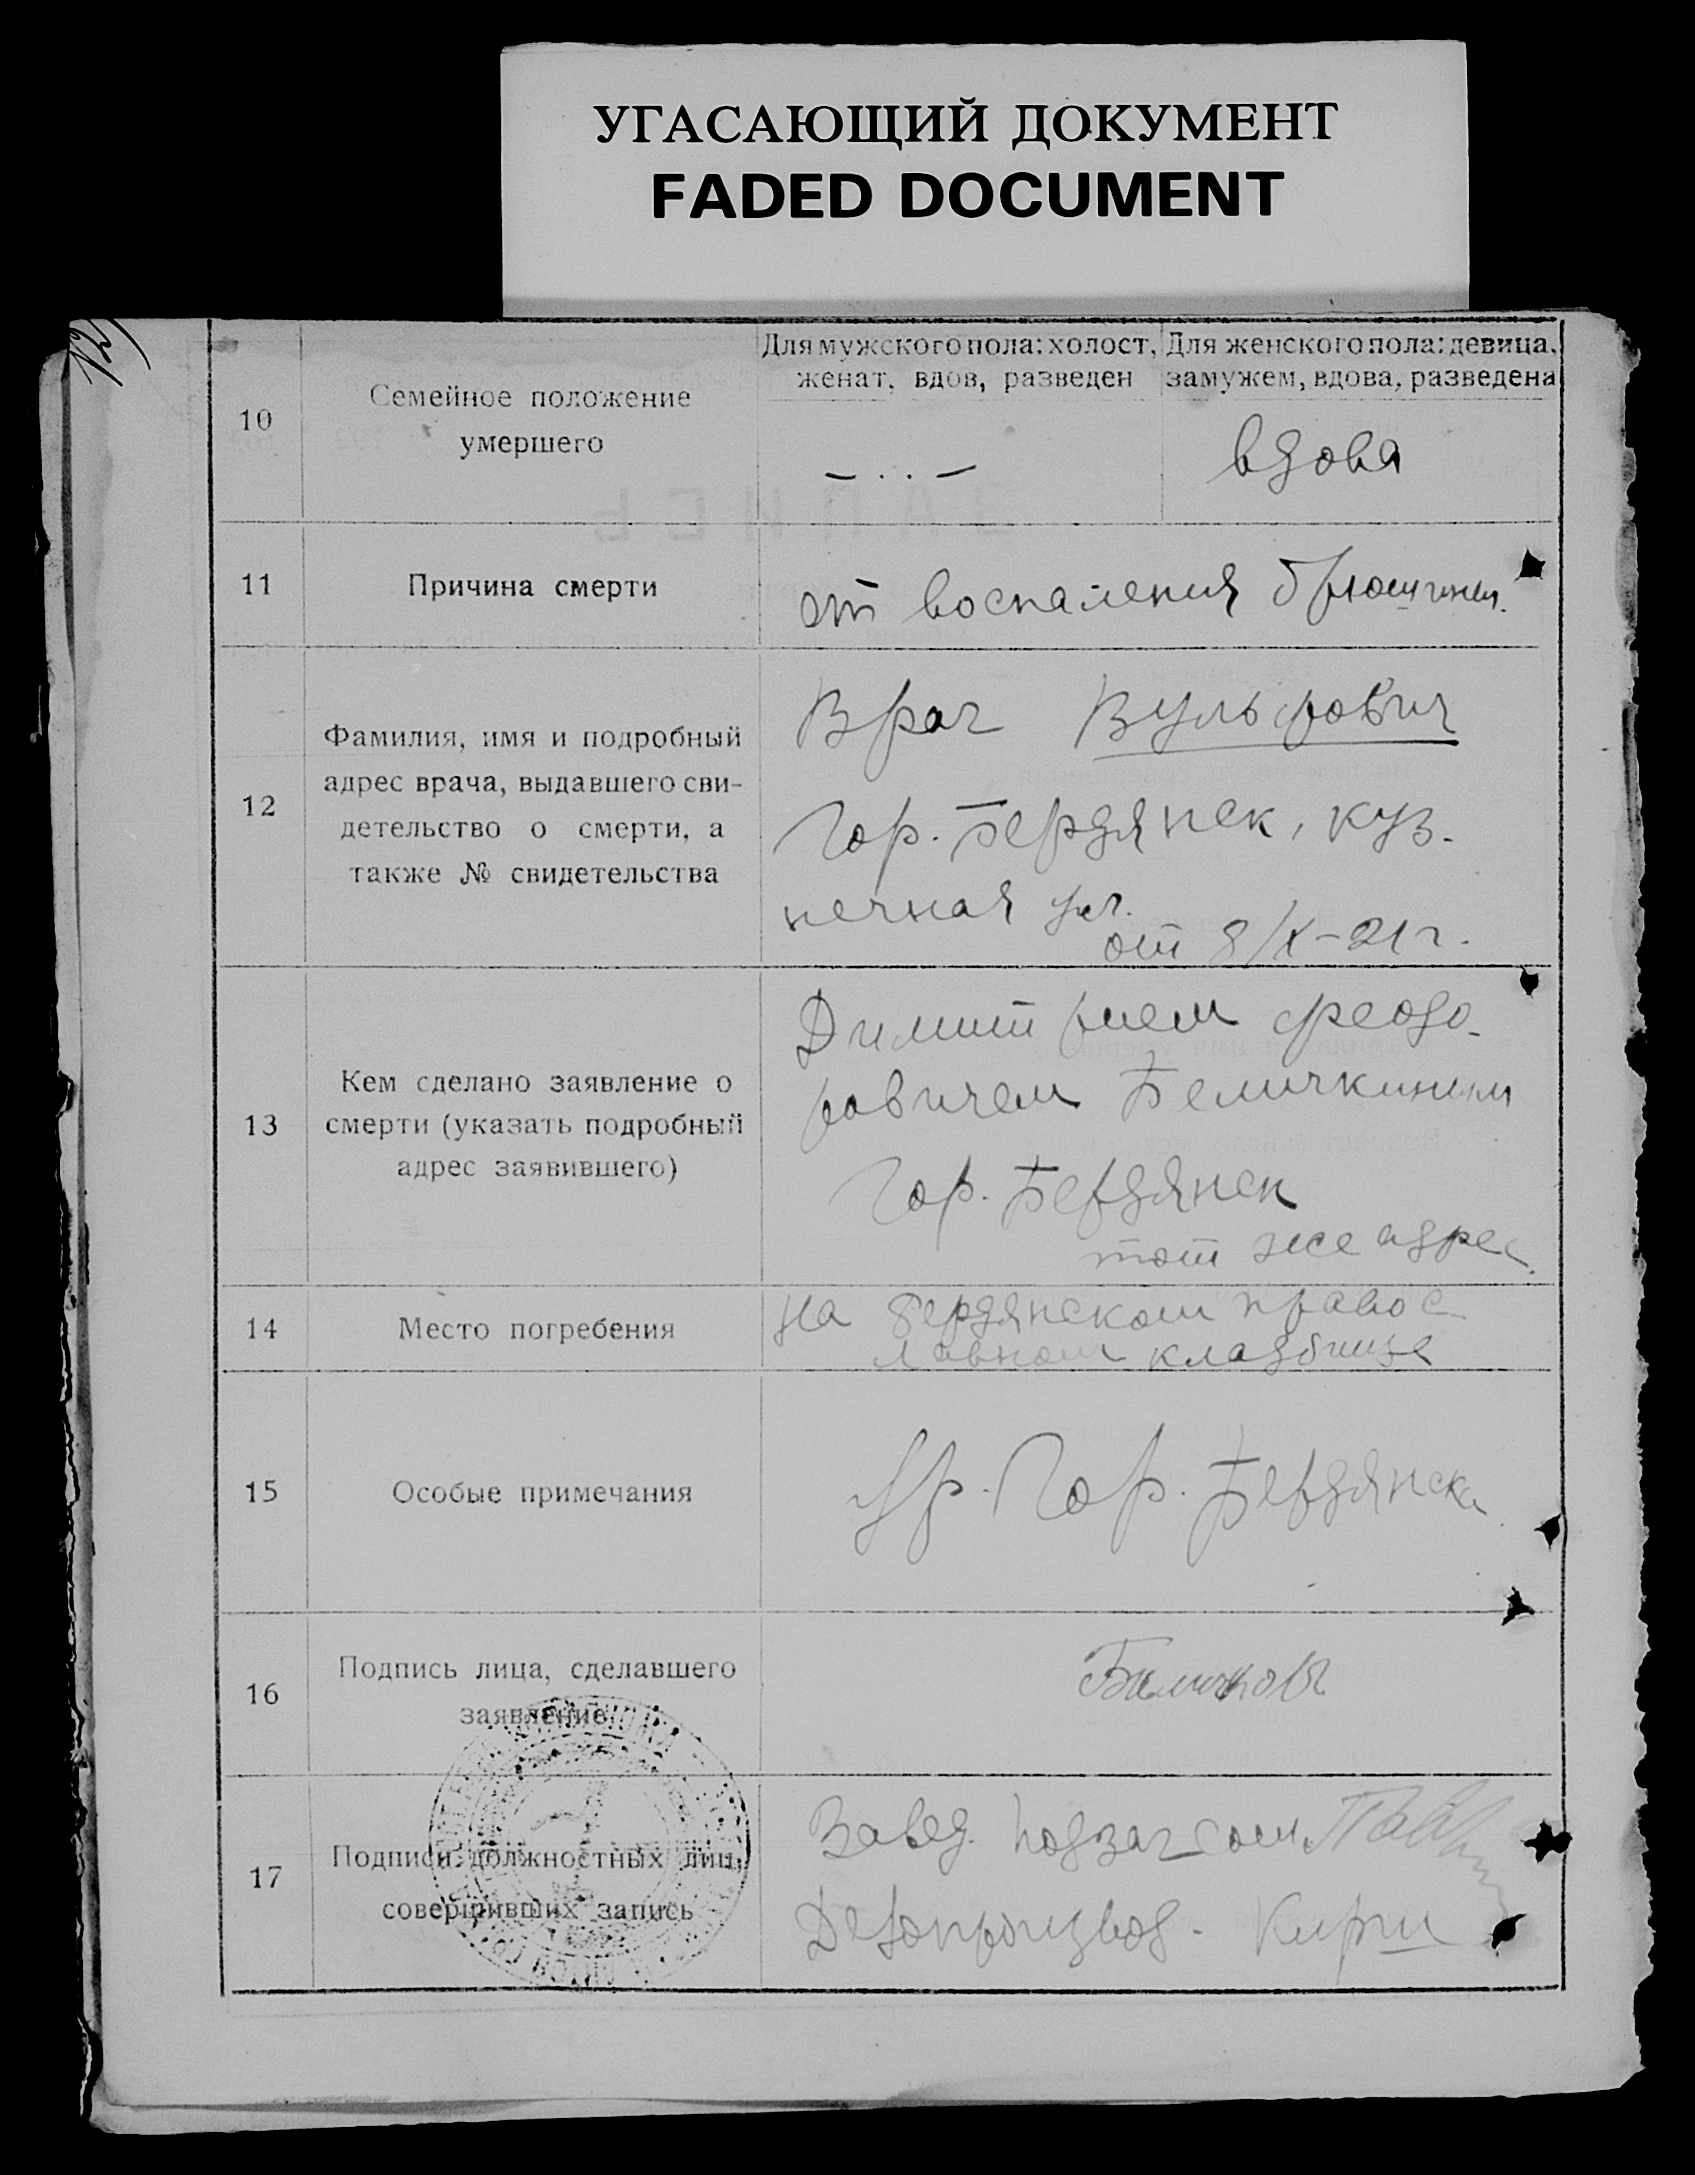 УГАСАЮЩИЙ ДОКУМЕНТ
FADED DOCUMENT
10
Семейное положение
умершего
Для мужского пола: холост,
женат, вдов, разведен
— . . —
Для женского пола: девица,
замужем, вдова, разведена
вдова
11
Причина смерти
от воспаления брюшины.
12
Фамилия, имя и подробный
адрес врача, выдавшего сви-
детельство о смерти, а
также № свидетельства
Врач Вульфович
Гор. Бердянск, куз-
нечная ул.
от 8/X-21 г.
13
Кем сделано заявление о
смерти (указать подробный
адрес заявившего)
Димитрием Феодо-
ровичем
Гор. Бердянск
тот же адрес.
14
Место погребения
на бердянском правос-
лавном кладбище
15
Особые примечания
гр. Гор. Бердянска
16
Подпись лица, сделавшего
заявление
17
Подписи должностных лиц,
совершивших запись
Завед. подзагсом
Делопроизвод.